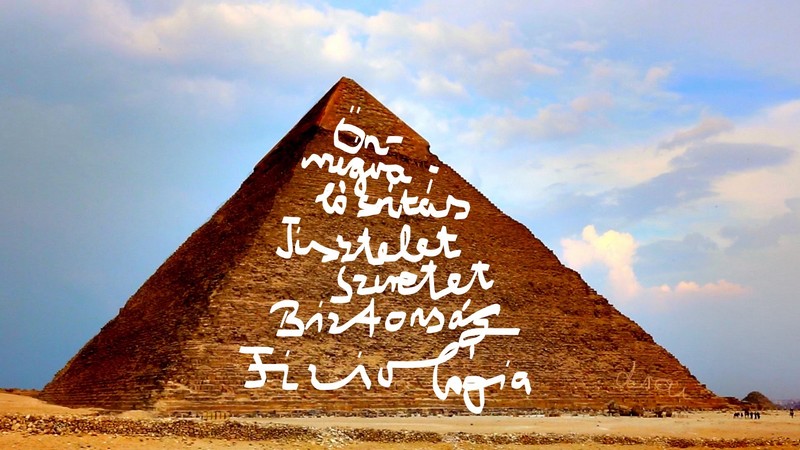 Ön-
megva-
lósítás
Tisztelet
Szeretet
Biztonság
Fiziológia